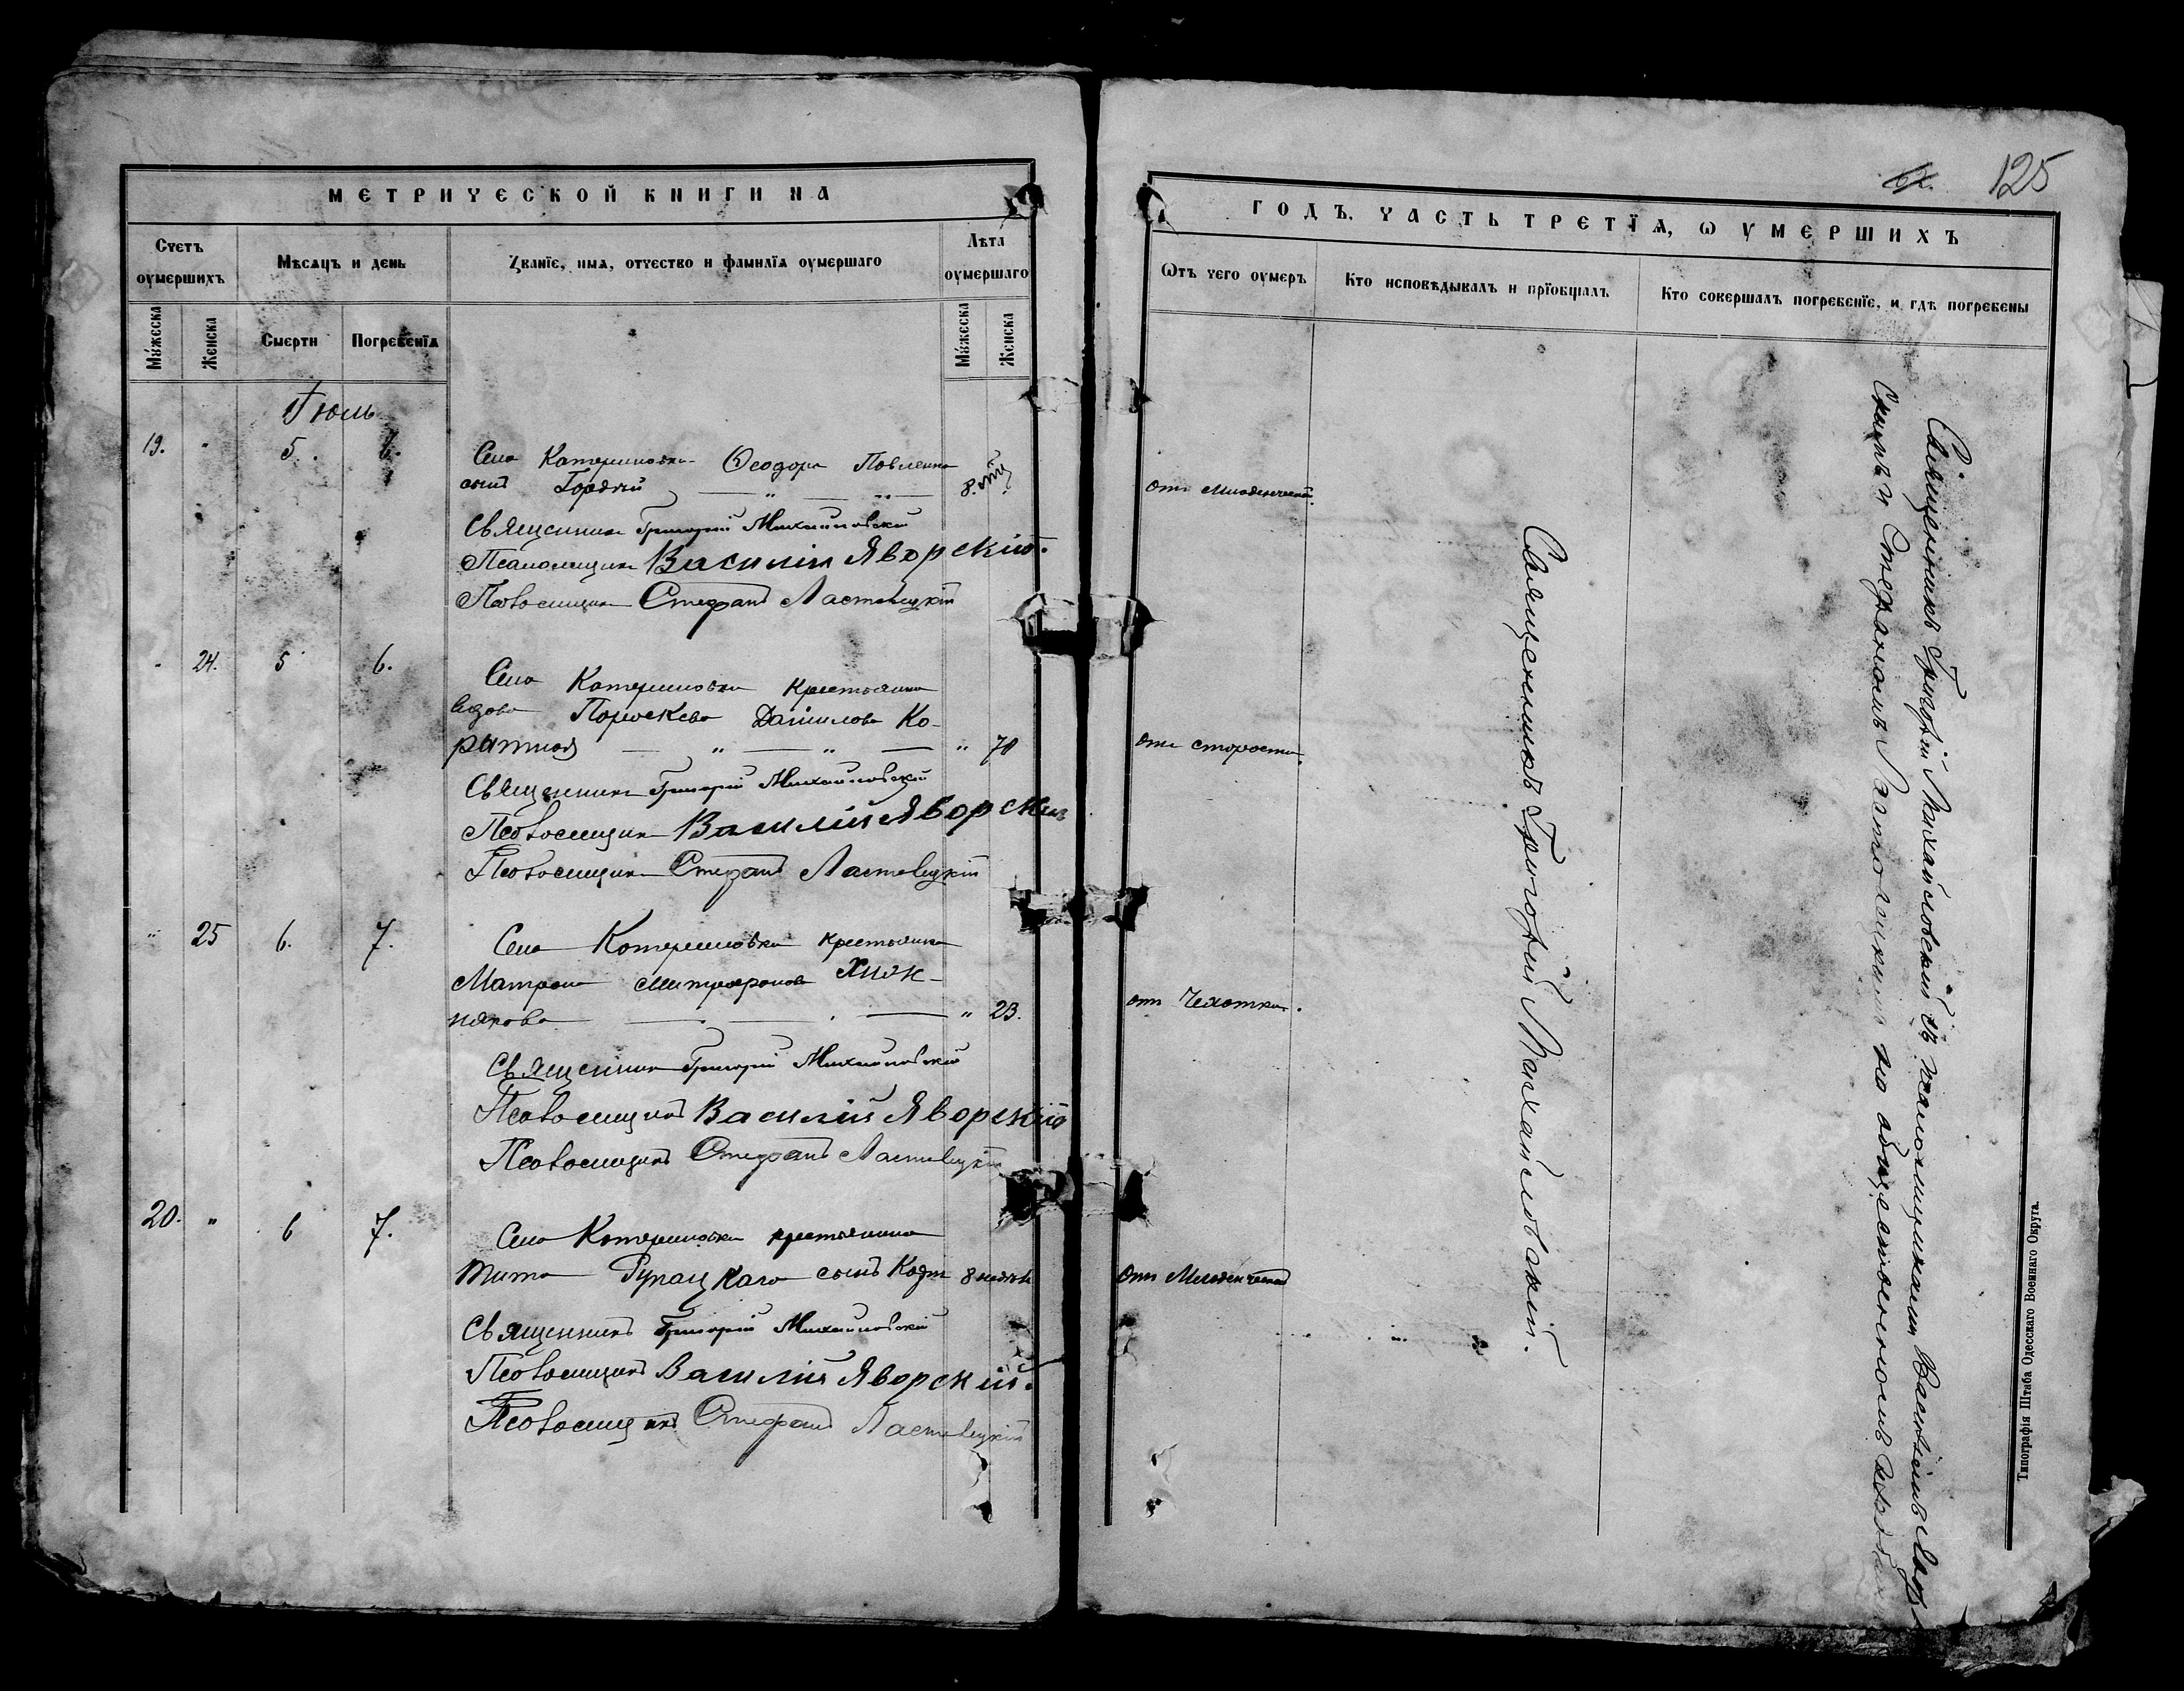 МЕТРИЧЕСКОЙ КНИГИ НА
Счетъ оумершихъ
Мѣсяцъ и день
Званїе, имя, отчество и фамилїя оумершаго
Лѣта оумершаго
Мꙋжеска
Женска
Смерти
Погребенїя
Мꙋжеска
Женска
Іюль
19. " 5. 6.
Села Катериновки Ѳеодора Павленка
сынъ Гордѣй 8.
Священникъ Григорій Михайловскій
Псаломщикъ Василій Яворскій.
Псаломщикъ Стефанъ Ластовецкій
" 24. 5 6.
Села Катериновки крестьянка
вдова Параскева Данилова Ко-
ратная " " " 70
Священникъ Григорій Михайловскій
Псаломщикъ Василій Яворскій
Псаломщикъ Стефанъ Ластовецкій
" 25 6. 7.
Села Катериновки крестьянка
Матрона Митрофанова
" 23.
Священникъ Григорій Михайловскій
Псаломщикъ Василій Яворскій
Псаломщикъ Стефанъ Ластовецкій
20. " 6 7.
Села Катериновки крестьянина
Тита сынъ 8 недѣль
Священникъ Григорій Михайловскій
Псаломщикъ Василій Яворскій.
Псаломщикъ Стефанъ Ластовецкій
125
ГОДЪ. ЧАСТЬ ТРЕТЇЯ, Ѡ УМЕРШИХЪ
Ѿтъ чего оумеръ
Кто исповѣдывалъ и прїобщалъ
Кто совершалъ погребенїе, и гдѣ погребены
отъ младенческой.
отъ старости.
отъ Чахотки.
отъ Младенческой
Священникъ Григорій Михайловскій.
Священникъ Григорій Михайловскій съ псаломщиками Василіемъ Явор
скимъ и Стефаномъ Ластовецкимъ на общественномъ кладбищѣ
Типографія Штаба Одесскаго Военнаго Округа.